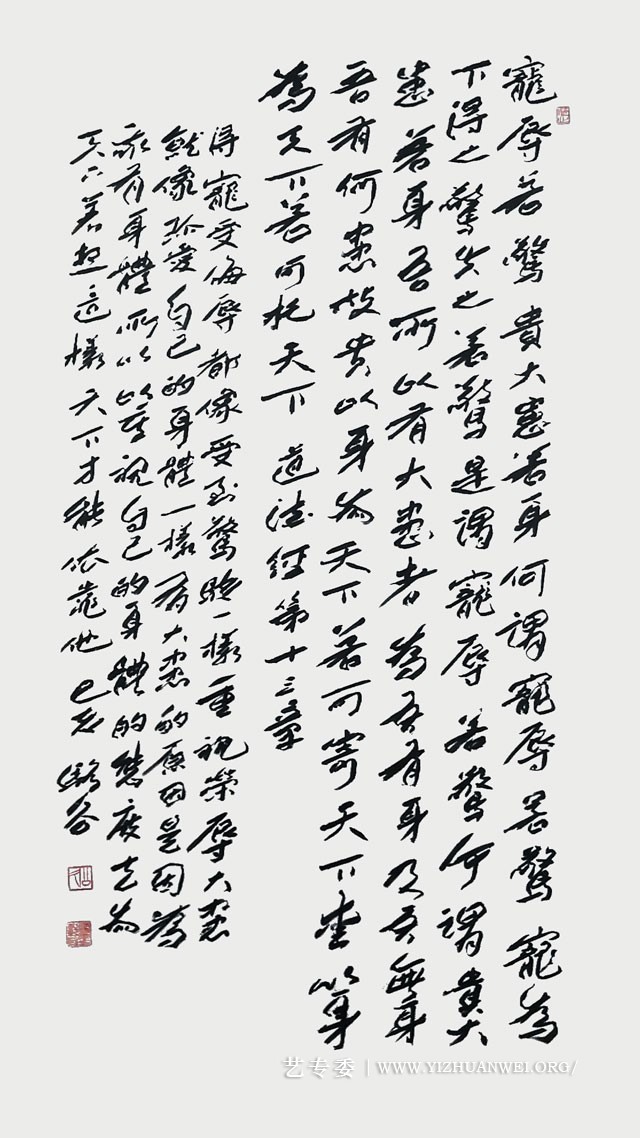 寵辱若驚貴大患若身何謂寵辱若驚寵為
下得之驚失之若驚是謂寵辱若驚何謂貴大
患若身吾所以有大患者為吾有身及吾無身
吾有何患故貴以身為天下若可寄天下愛以身
為天下若可托天下 道德經第十三章
得寵受侮辱都像受到驚嚇一樣重視榮辱大患
就像珍愛自己的身體一樣有大患的原因是因為
我有身體所以以重視自己的身體的態度去為
天下著想這樣天下才能依靠他 己亥
艺专委 | WWW.YIZHUANWEI.ORG/